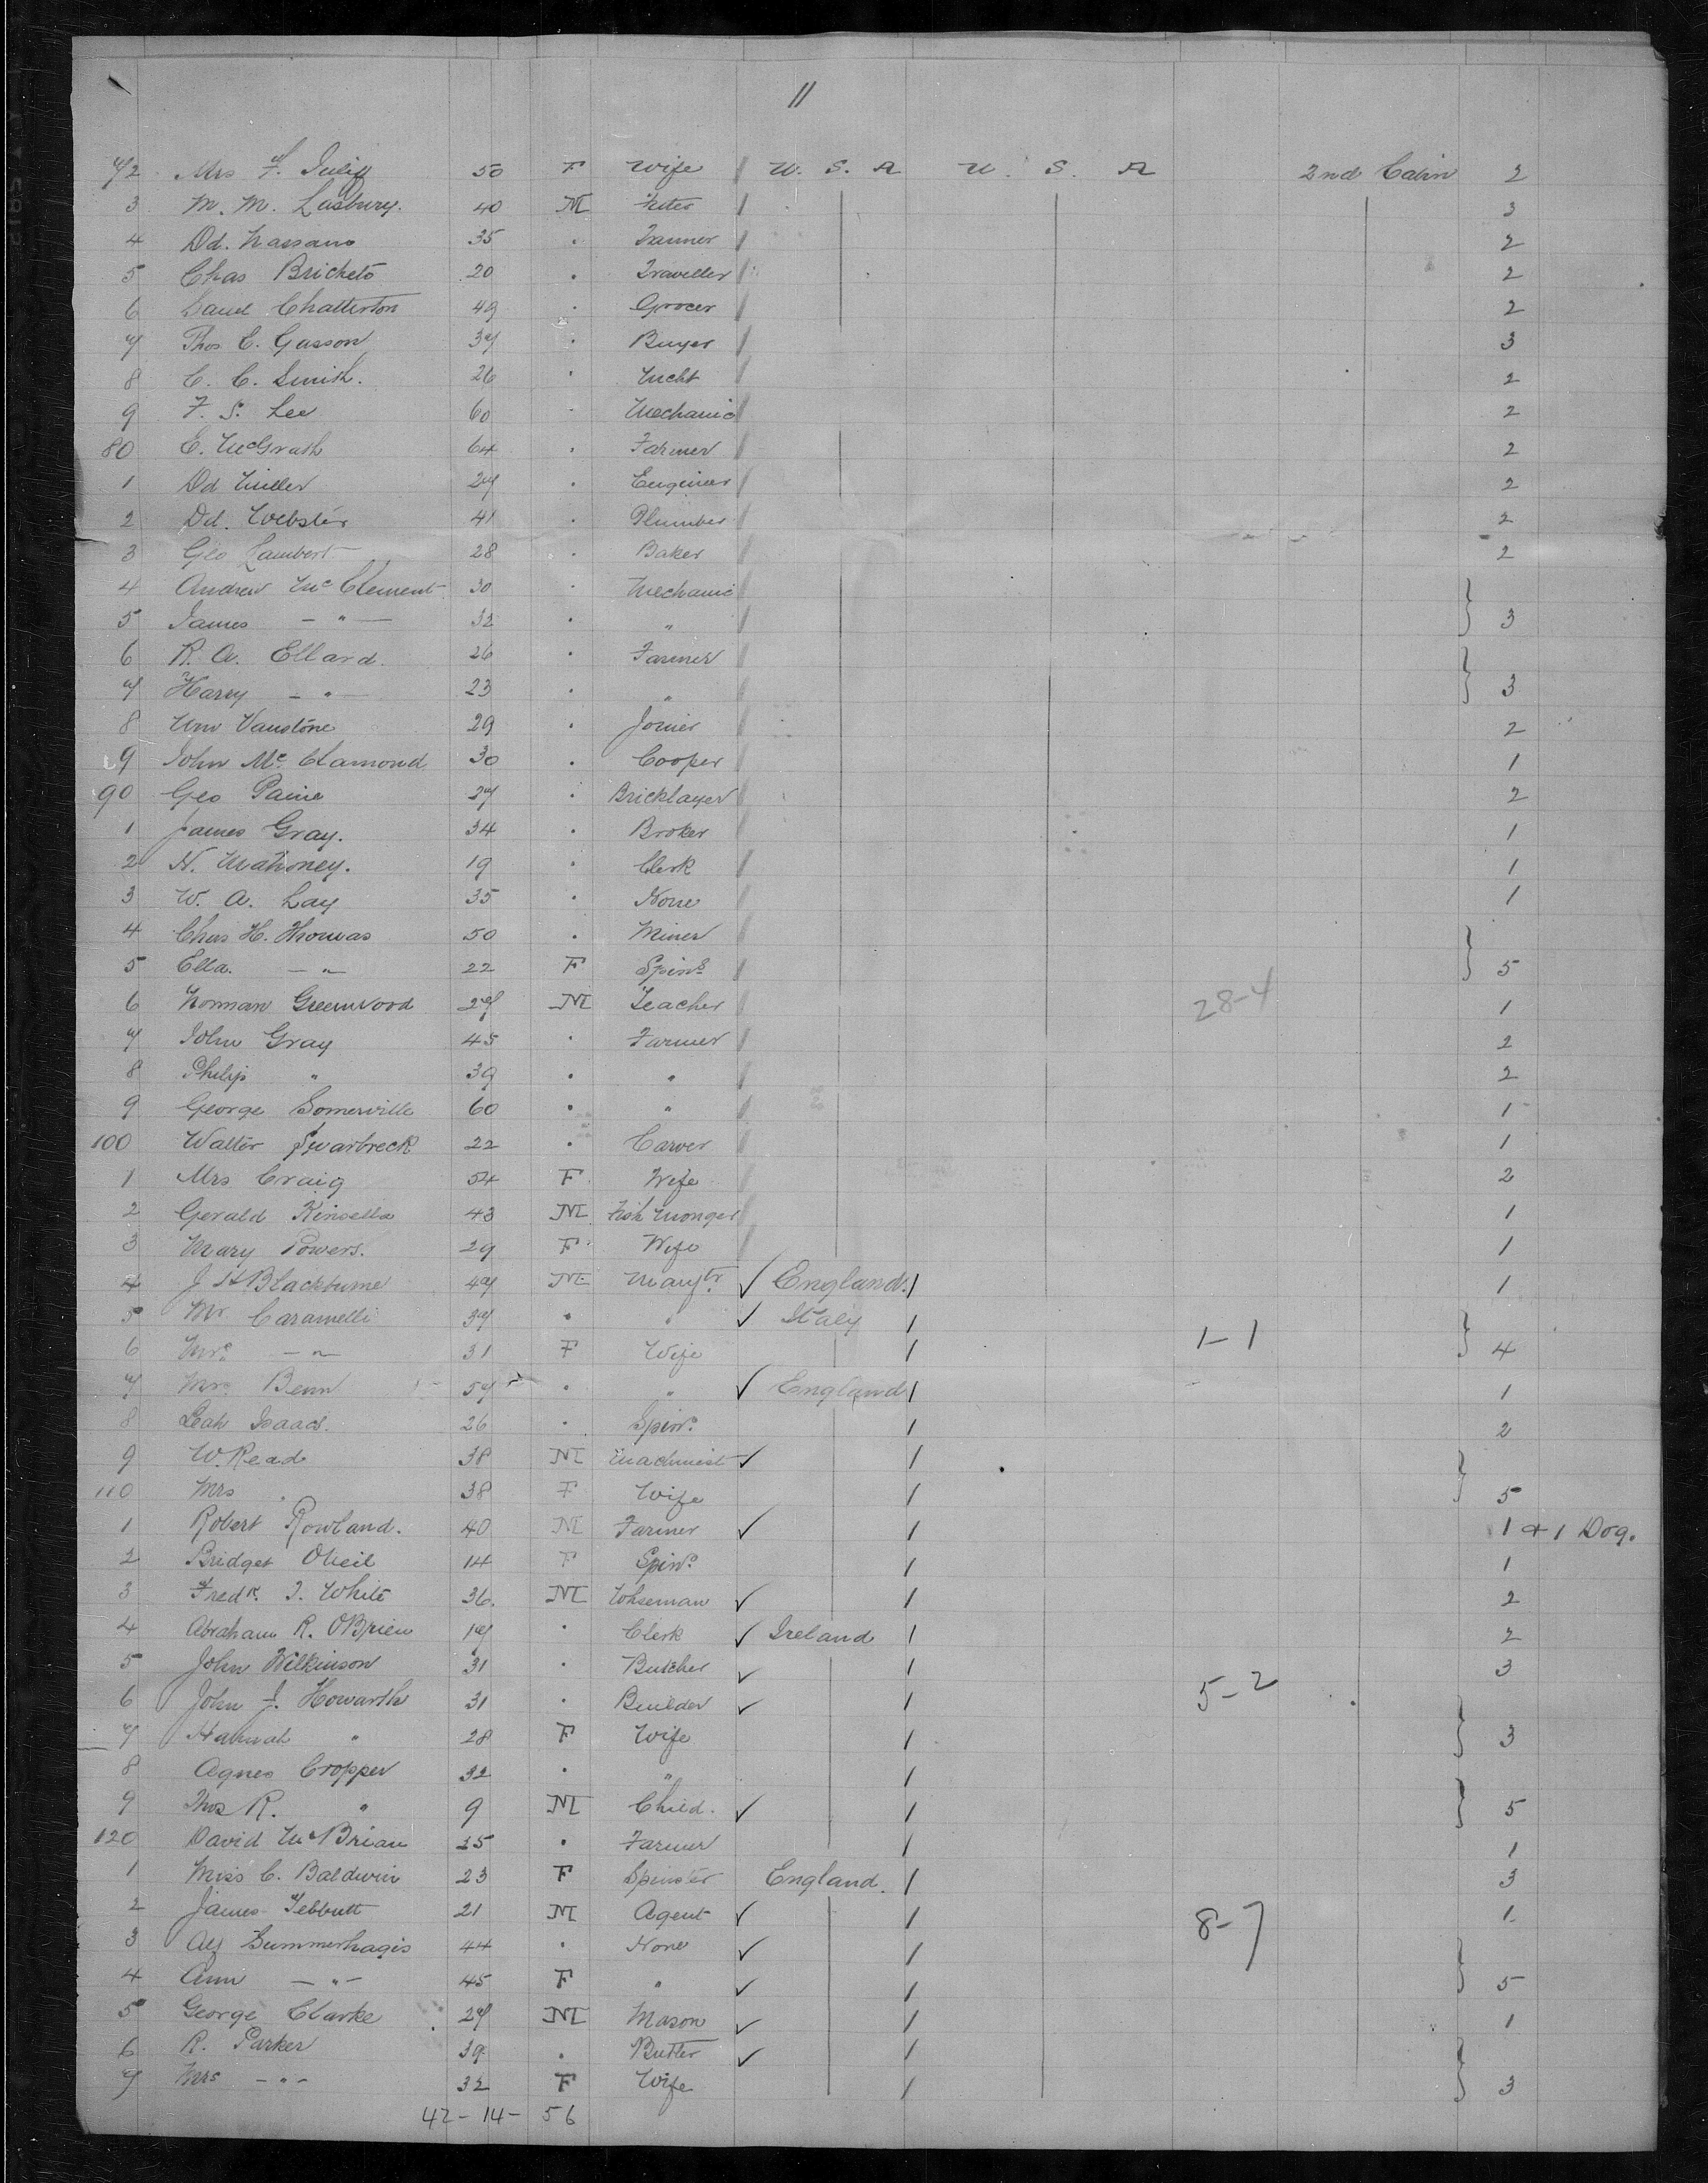 11
72 Mrs F. 50 F Wife U. S. A U. S. A 2nd Cabin 2
3 M. M. Lasbury. 40 M 3
4 Dd. 35 " Farmer 2
5 Chas Bricheto 20 " Traveller 2
6 Saml Chatterton 49 " Grocer 2
7 Thos E. Gasson 37 " Buyer 3
8 C. C. Smith. 26 " 2
9 F. S. Lee 60 " Mechanic 2
80 E. McGrath 64 " Farmer 2
1 Dd Miller 27 " Engineer 2
2 Dd. Webster 41 " Plumber 2
3 Geo Lambert 28 " Baker 2
4 Andrew McClement 30 " Mechanic
5 James — " — 32 " " } 3
6 R. A. Ellard. 26 " Farmer
7 Harry — " — 23 " " } 3
8 Wm Vanstone 29 " Joiner 2
9 John Mc Clamond 30 " Cooper 1
90 Geo Paine 27 " Bricklayer 2
1 James Gray. 34 " Broker 1
2 N. Mahoney. 19 " Clerk 1
3 W. A. Lay 35 " None 1
4 Chas H. Thomas 50 " Miner
5 Ella. — " — 22 F Spinr } 5
6 Norman Greenwood 27 M Teacher 28-4 1
7 John Gray 45 " Farmer 2
8 Philip " 39 " " 2
9 George Somerville 60 " " 1
100 Walter Swarbreck 22 " Carver 1
1 Mrs Craig 54 F Wife 2
2 Gerald Kinsella 43 M Fish Monger 1
3 Mary Powers. 29 F Wife 1
4 J H Blackburne 47 M Manftr. ✓ England. / 1
5 Mr Caramelli 37 " " ✓ Italy /
6 Mrs — " — 31 F Wife / 1-1 } 4
7 Mrs Benn 57 " " ✓ England / 1
8 Leah Isaacs. 26 " Spinr. / 2
9 W. Read 38 M Machinist ✓ /
110 Mrs " 38 F Wife / } 5
1 Robert Rowland. 40 M Farmer ✓ / 1 + 1 Dog.
2 Bridget ONeil 14 F Spinr. / 1
3 Fredk. J. White 36. M Whseman ✓ / 2
4 Abraham R. OBrien 17 " Clerk ✓ Ireland / 2
5 John Wilkinson 31 " Butcher ✓ / 3
6 John J. Howarth 31 " Builder ✓ / 5-2
7 Hannah " 28 F Wife / } 3
8 Agnes Cropper 32 " " /
9 Thos R. " 9 M Child. ✓ / } 5
120 David McBrian 25 " Farmer / 1
1 Miss C. Baldwin 23 F Spinster England. / 3
2 James Tebbutt 21 M Agent ✓ / 8-7 1
3 Alf Summerhagis 44 " None ✓ /
4 Ann — " — 45 F " ✓ / } 5
5 George Clarke 27 M Mason ✓ / 1
6 R. Parker 39 " Butler ✓ /
7 Mrs — " — 32 F Wife / } 3
42 - 14 - 56